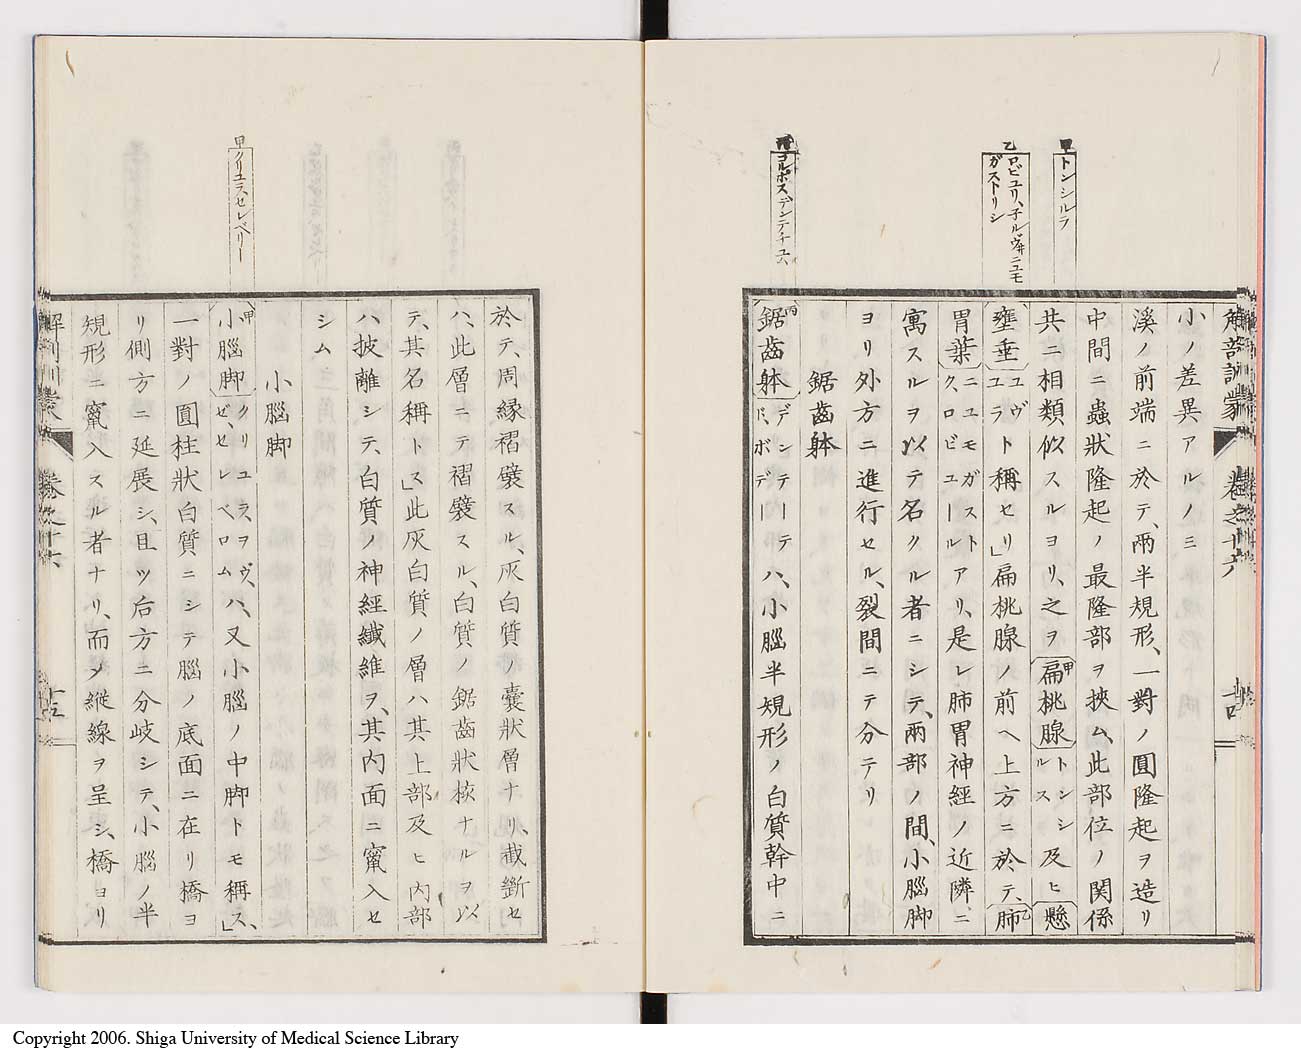 甲 トンシルラ
乙 ロビユリ、子ルヴ井ニユモ
ガストリシ
コルポスデンテチユム
解剖訓蒙 卷之十六 十四
小ノ差異アルノミ
溪ノ前端ニ於テ、兩半規形、一對ノ圓隆起ヲ造リ
中間ニ蟲狀隆起ノ最隆部ヲ挾ム、此部位ノ関係
共ニ相類似スルヨリ、之ヲ甲扁桃腺トンシルス及ヒ懸
壅垂ユヴユラト稱セリ」扁桃腺ノ前ヘ上方ニ於テ、乙肺
胃葉ニユモガストクロビユールアリ、是レ肺胃神経ノ近隣ニ
寓スルヲ以テ名クル者ニシテ、兩部ノ間、小腦脚
ヨリ外方ニ進行セル、裂間ニテ分テリ
鋸齒躰
丙鋸齒躰デンテーテドボデーハ、小腦半規形ノ白質幹中ニ
甲 クリユラセレベリー
於テ、周縁褶襞スル、灰白質ノ嚢狀層ナリ、截斷セ
ハ、此層ニテ褶襞スル、白質ノ鋸齒狀核ナルヲ以
テ、其名稱トス」此灰白質ノ層ハ其上部及ヒ內部
ハ披離シテ、白質ノ神經纖維ヲ、其內面ニ竄入セ
シム
小腦脚
甲小腦脚クリユラ、ヲヴ、ゼ、セレベロムハ、又小腦ノ中脚トモ稱ス、」
一對ノ圓柱狀白質ニシテ腦ノ底面ニ在リ橋ヨ
リ側方ニ延展シ、且ツ后方ニ分岐シテ、小腦ノ半
規形ニ竄入スル者ナリ、而メ縱線ヲ呈シ、橋ヨリ
解剖訓蒙 卷之十六 十五
Copyright 2006. Shiga University of Medical Science Library